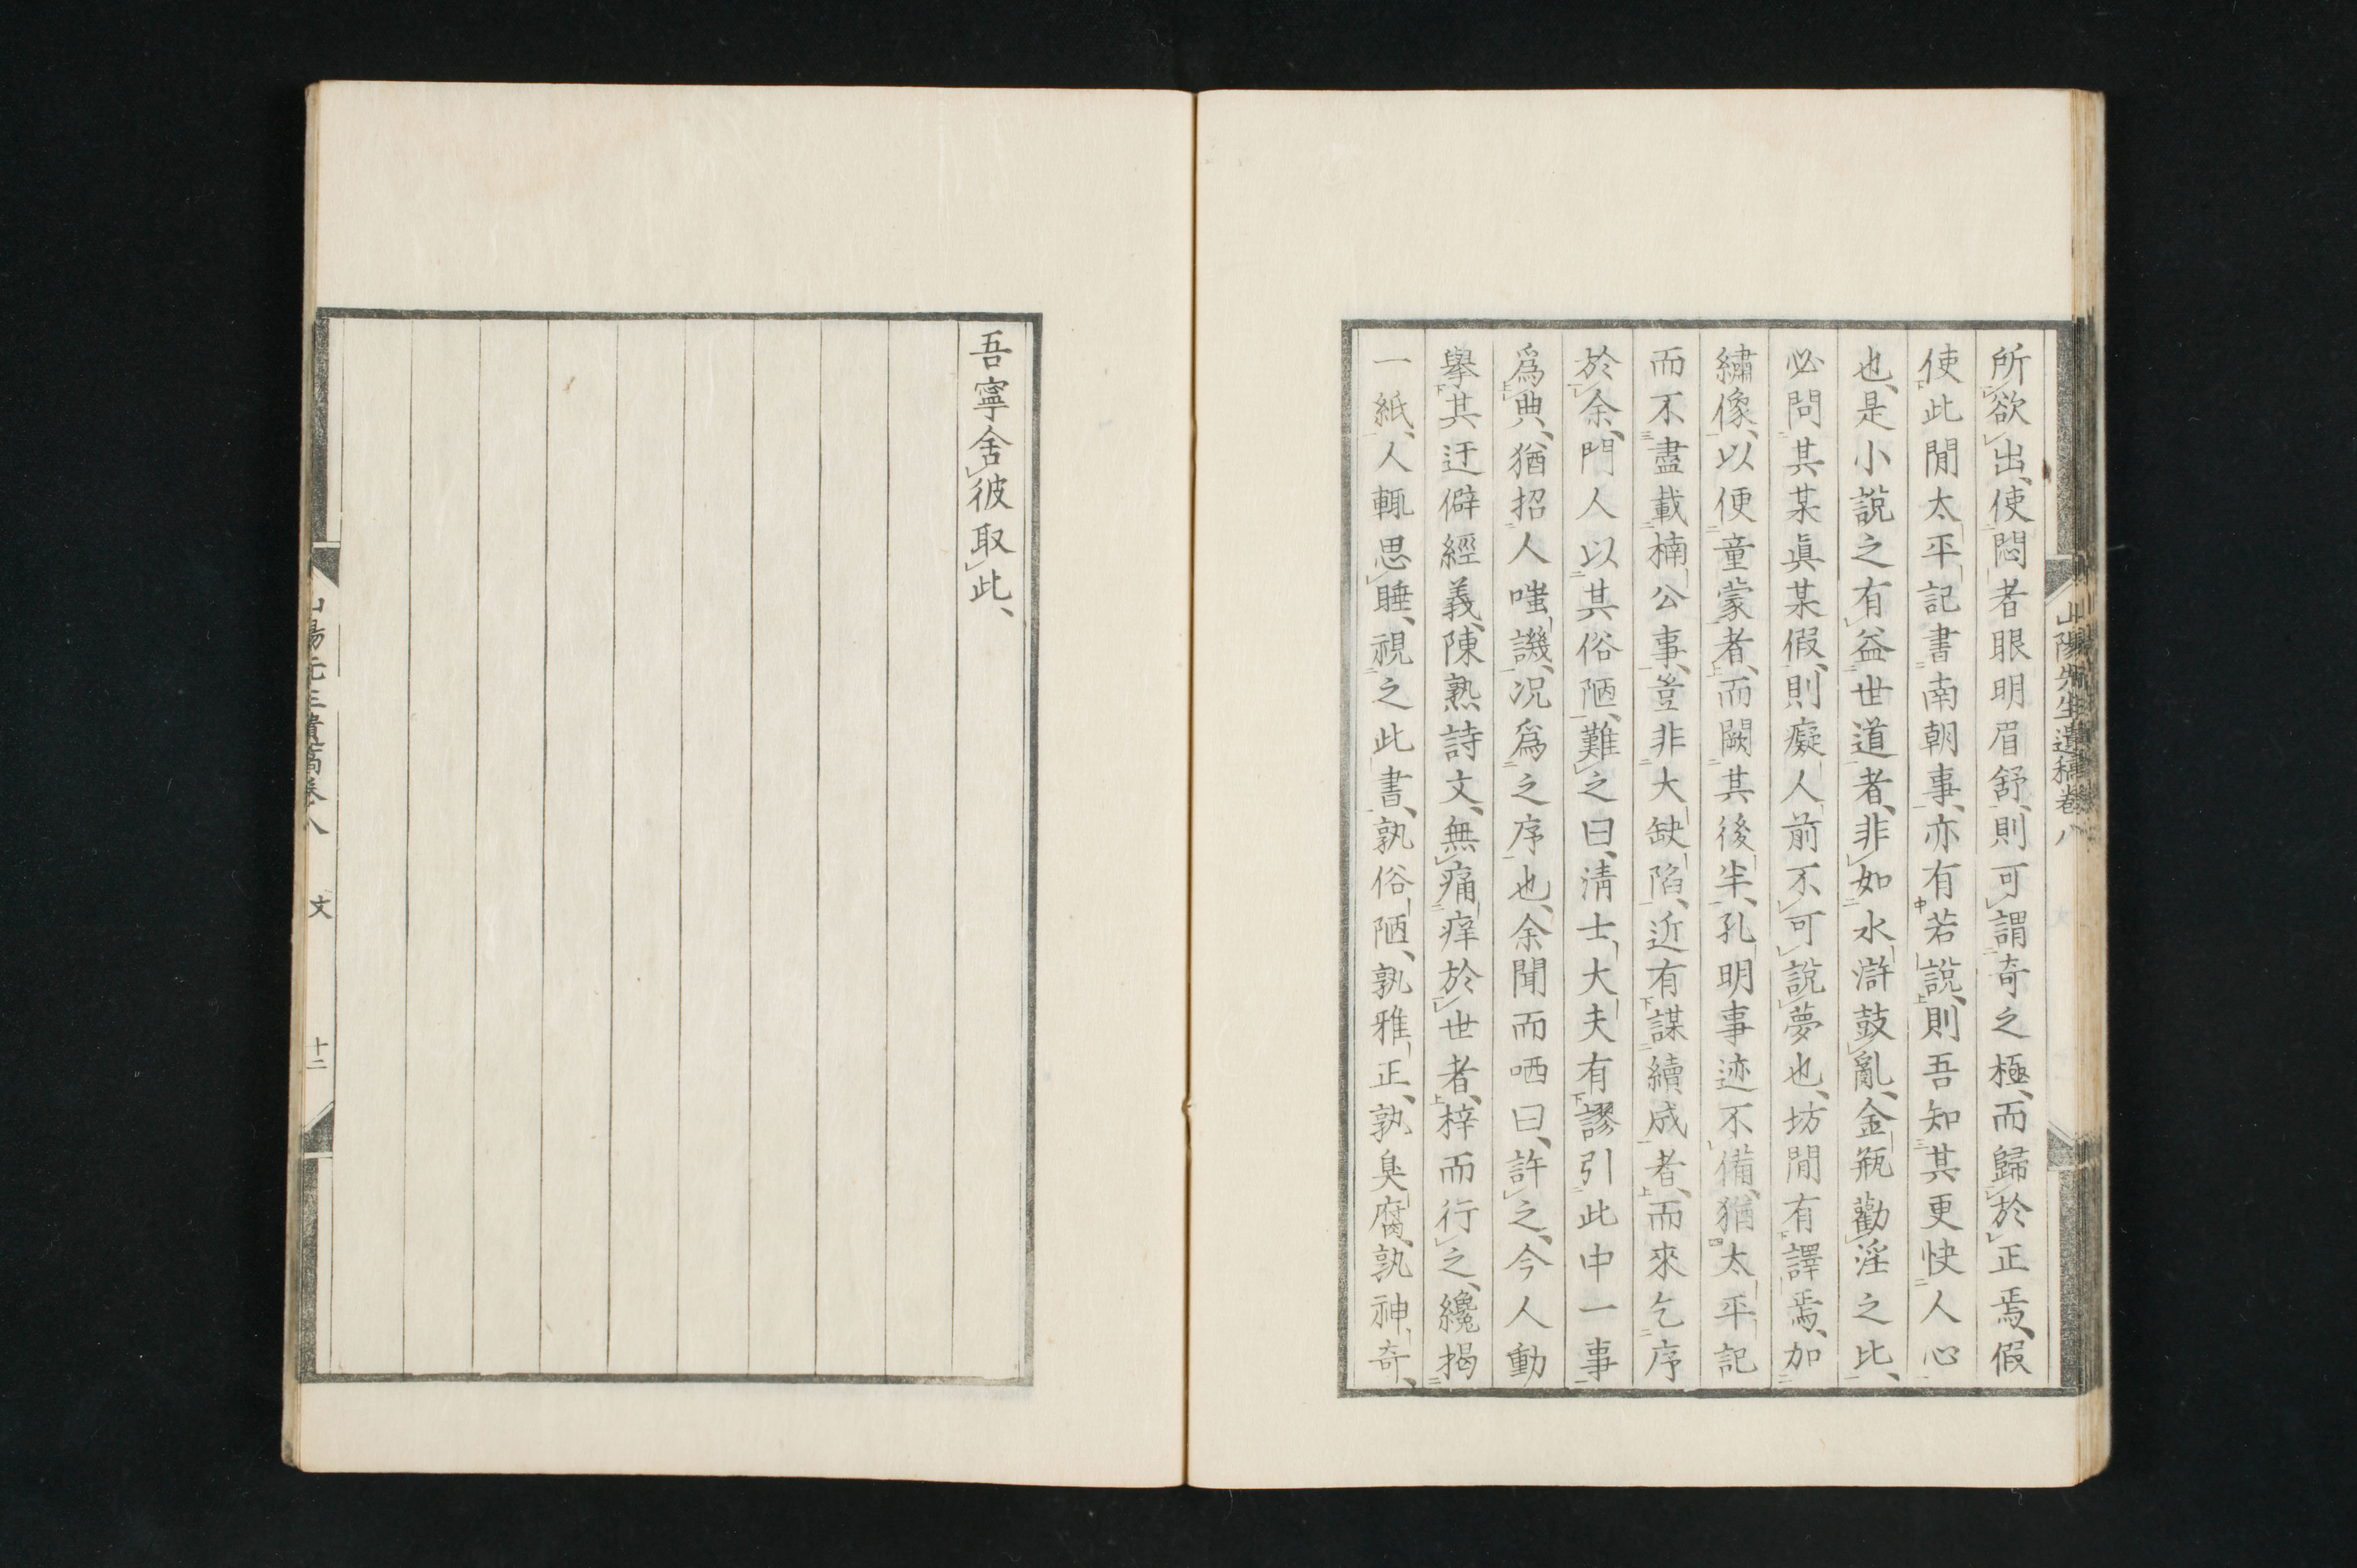 山陽先生遺稿卷八
所欲出、使悶者眼明眉舒、則可謂奇之極、而歸於正焉、假
使此閒太平記書南朝事、亦有若說、則吾知其更快人心
也、是小說之有益世道者、非如水滸鼓亂、金瓶勸淫之比、
必問其某眞某假、則癡人前不可說夢也、坊閒有譯焉、加
繡像、以便童蒙者、而闕其後半、孔明事迹不備、猶太平記
而不盡載楠公事、豈非大缺陷、近有謀續成者、而來乞序
於余、門人以其俗陋、難之曰、淸士大夫有謬引此中一事
爲典、猶招人嗤譏、况爲之序也、余聞而哂曰、許之、今人動
擧其迂僻經義、陳熟詩文、無痛痒於世者、梓而行之、纔揭
一紙、人輒思睡、視之此書、孰俗陋、孰雅正、孰臭腐、孰神奇、
吾寧舍彼取此、
山陽先生遺稿卷八 文 十二